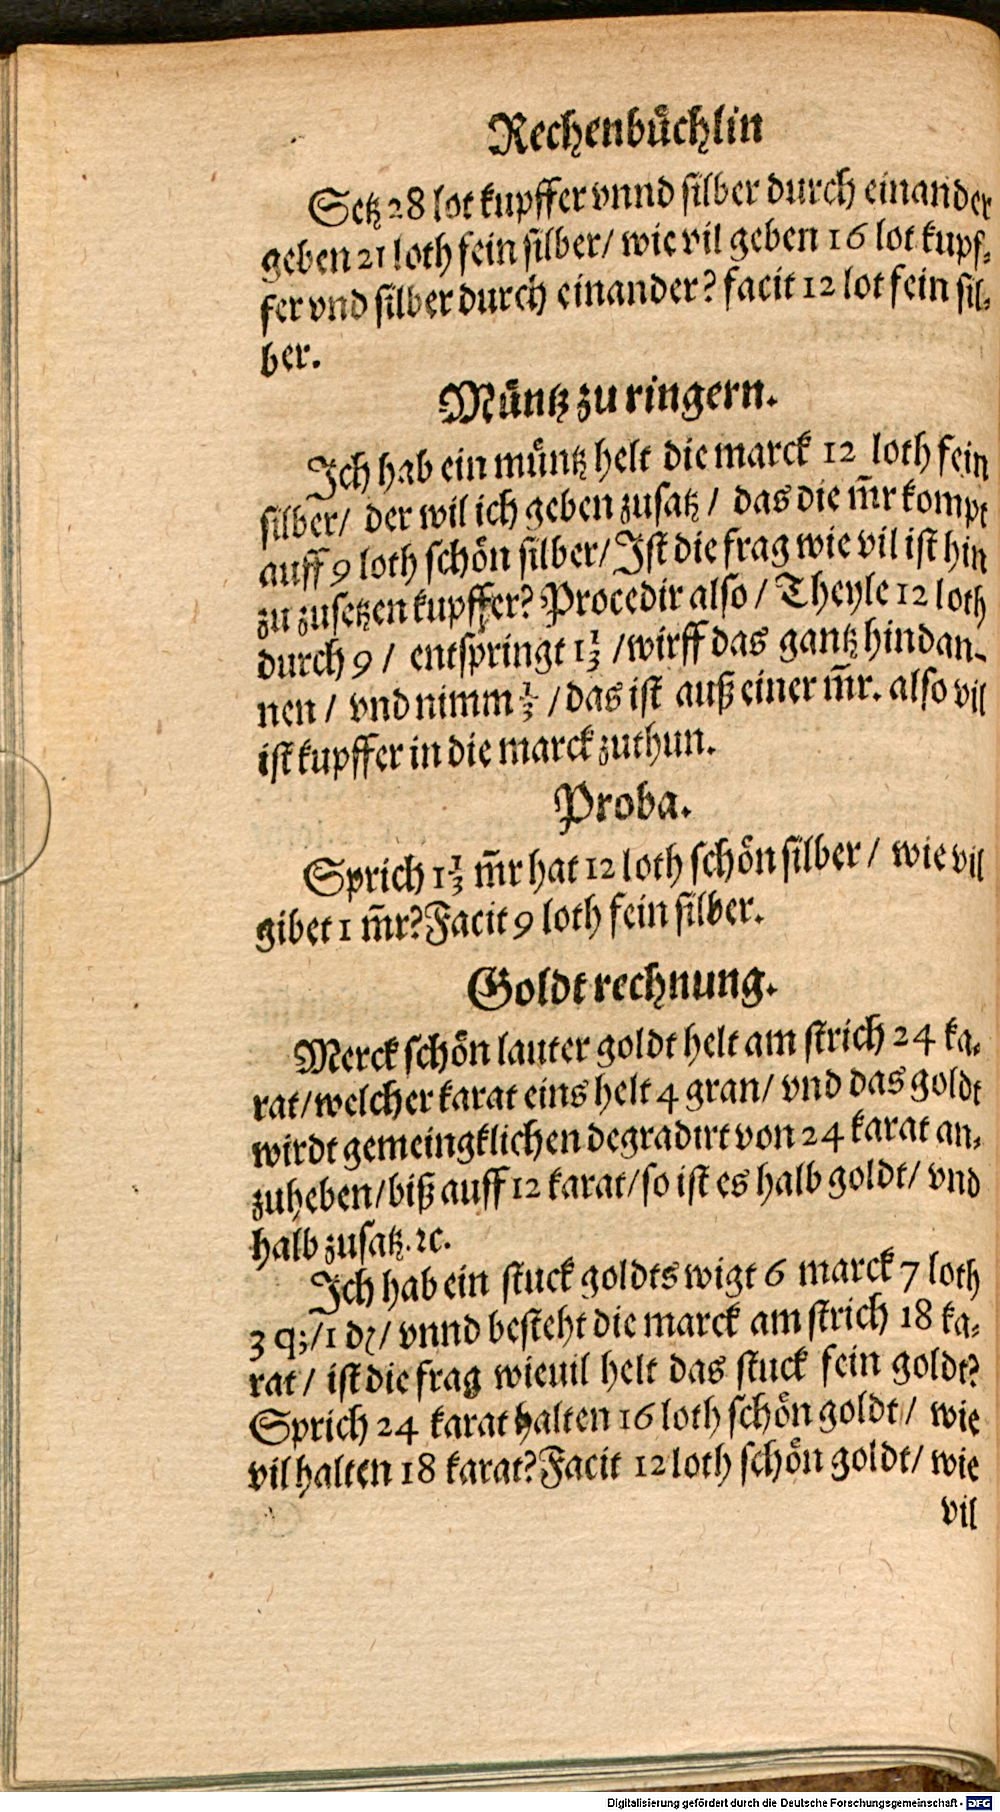 Rechenbuͤchlin
Setz 28 lot kupffer vnnd silber durch einander
geben 21 loth fein silber/ wie vil geben 16 lot kupf⸗
fer vnd silber durch einander? facit 12 lot fein sil⸗
ber.
Muͤntz zu ringern.
Ich hab ein muͤntz helt die marck 12 loth fein
silber/ der wil ich geben zusatz / das die m̄r kompt
auff 9 loth schoͤn silber/ Ist die frag wie vil ist hin
zu zusetzen kupffer? Procedir also / Theyle 12 loth
durch 9 / entspringt 1 1/3 /wirff das gantz hindan⸗
nen / vnd nimm 1/3 /das ist auß einer m̄r. also vil
ist kupffer in die marck zuthun.
Proba.
Sprich 1 1/3 m̄r hat 12 loth schoͤn silber / wie vil
gibet 1 m̄r? Facit 9 loth fein silber.
Goldt rechnung.
Merck schoͤn lauter goldt helt am strich 24 ka⸗
rat/welcher karat eins helt 4 gran/ vnd das goldt
wirdt gemeingklichen degradirt von 24 karat an⸗
zuheben/biß auff 12 karat/so ist es halb goldt/ vnd
halb zusatz.ꝛc.
Ich hab ein stuck goldts wigt 6 marck 7 loth
3 q;/1 dꝛ/ vnnd besteht die marck am strich 18 ka⸗
rat / ist die frag wieuil helt das stuck fein goldt?
Sprich 24 karat halten 16 loth schoͤn goldt / wie
vil halten 18 karat? Facit 12 loth schoͤn goldt/ wie
vil
Digitalisierung gefördert durch die Deutsche Forschungsgemeinschaft - DFG